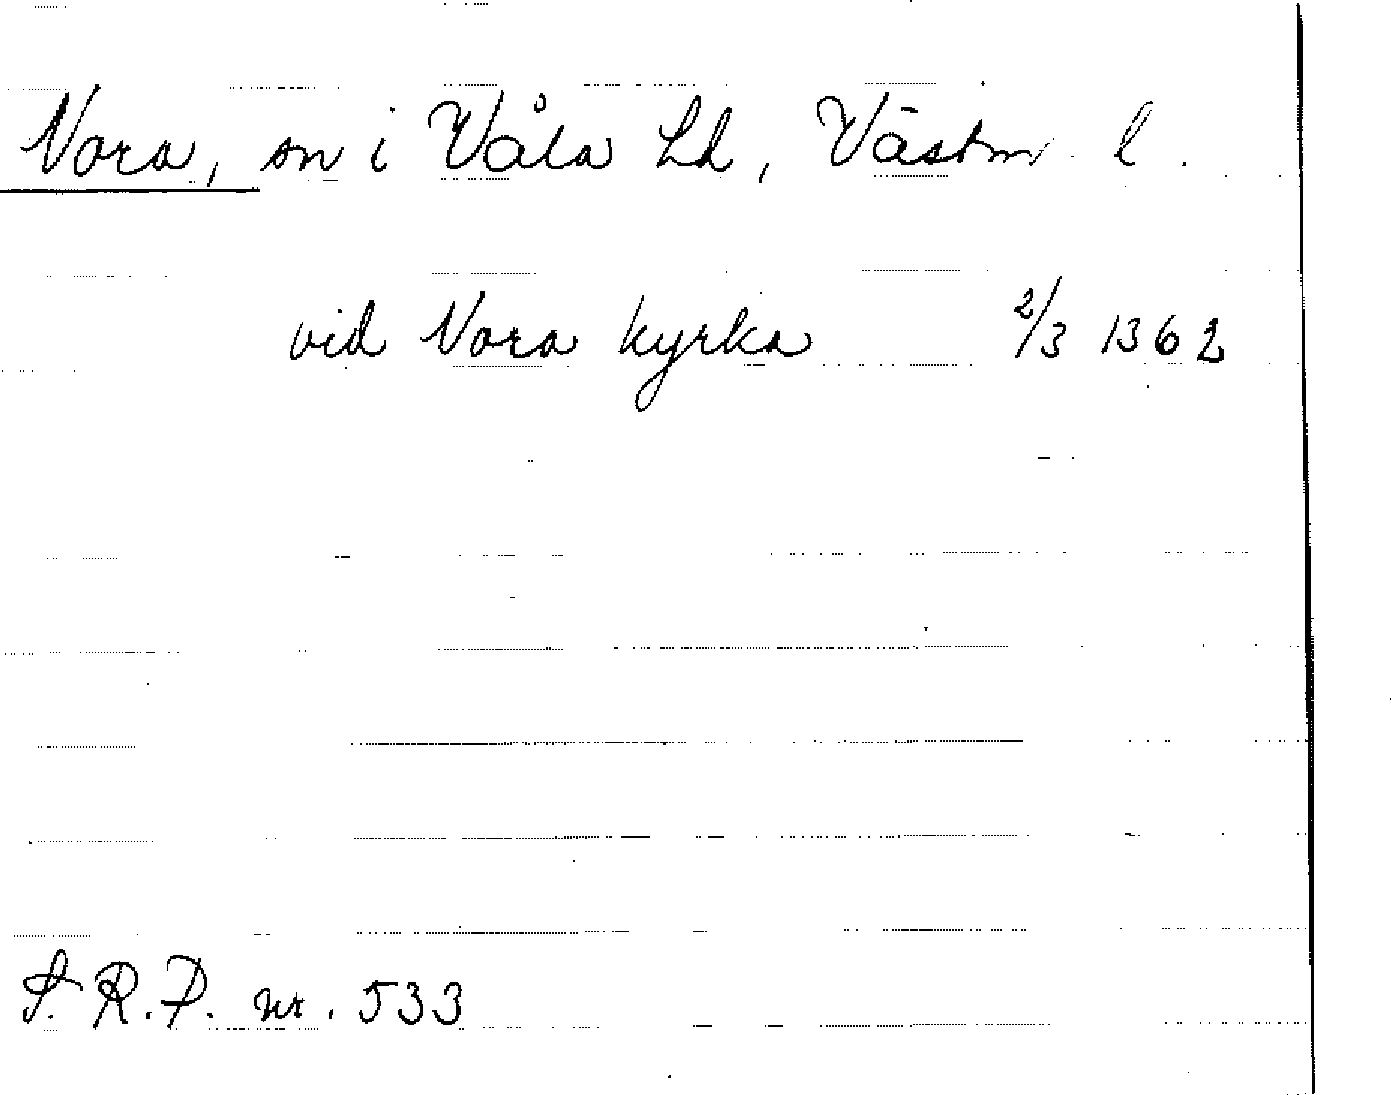 Nora, sn i Våla hd, Västm. l.
vid Nora kyrka 2/3 1362
S.R.P. nr. 533